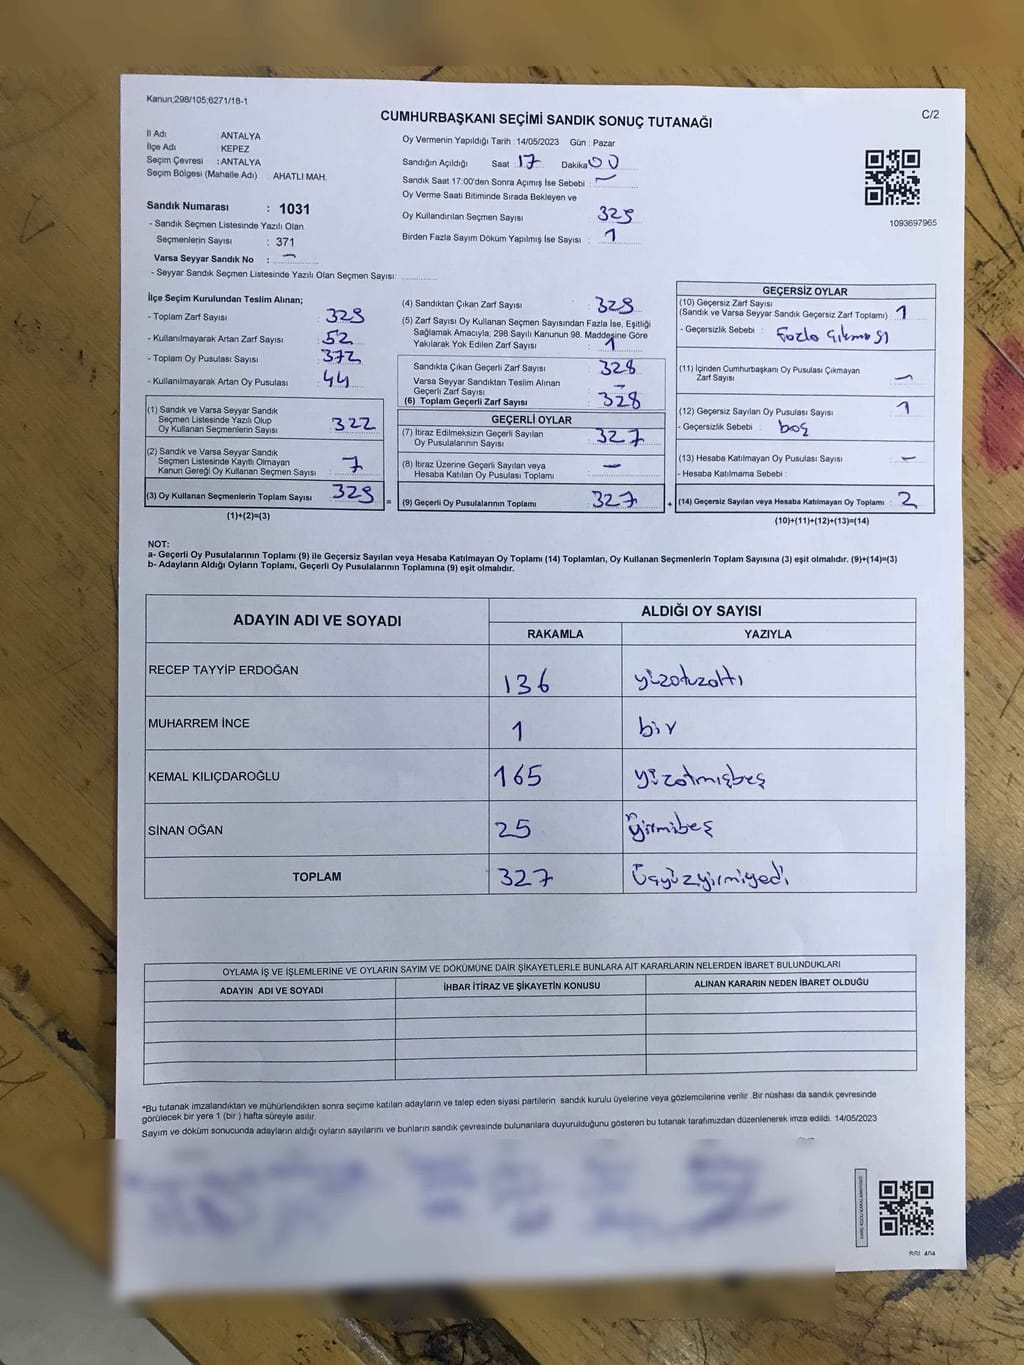 Kanun;298/105;6271/18-1
C/2
CUMHURBAŞKANI SEÇİMİ SANDIK SONUÇ TUTANAĞI
İl Adı : ANTALYA
İlçe Adı : KEPEZ
Seçim Çevresi : ANTALYA
Seçim Bölgesi (Mahalle Adı) : AHATLI MAH.
Sandık Numarası : 1031
- Sandık Seçmen Listesinde Yazılı Olan
Seçmenlerin Sayısı : 371
Varsa Seyyar Sandık No : -
- Seyyar Sandık Seçmen Listesinde Yazılı Olan Seçmen Sayısı:
Oy Vermenin Yapıldığı Tarih : 14/05/2023 Gün : Pazar
Sandığın Açıldığı Saat : 17 Dakika 00
Sandık Saat 17:00'den Sonra Açımış İse Sebebi : -
Oy Verme Saati Bitiminde Sırada Bekleyen ve
Oy Kullandırılan Seçmen Sayısı : 329
Birden Fazla Sayım Döküm Yapılmış İse Sayısı : 1
1093697965
İlçe Seçim Kurulundan Teslim Alınan;
- Toplam Zarf Sayısı : 329
- Kullanılmayarak Artan Zarf Sayısı : 52
- Toplam Oy Pusulası Sayısı : 372
- Kullanılmayarak Artan Oy Pusulası : 44
(1) Sandık ve Varsa Seyyar Sandık
Seçmen Listesinde Yazılı Olup
Oy Kullanan Seçmenlerin Sayısı : 322
(2) Sandık ve Varsa Seyyar Sandık
Seçmen Listesinde Kayıtlı Olmayan
Kanun Gereği Oy Kullanan Seçmen Sayısı : 7
(3) Oy Kullanan Seçmenlerin Toplam Sayısı : 329 =
(1)+(2)=(3)
(4) Sandıktan Çıkan Zarf Sayısı : 329
(5) Zarf Sayısı Oy Kullanan Seçmen Sayısından Fazla İse, Eşitliği
Sağlamak Amacıyla; 298 Sayılı Kanunun 98. Maddesine Göre
Yakılarak Yok Edilen Zarf Sayısı : 1
Sandıkta Çıkan Geçerli Zarf Sayısı : 328
Varsa Seyyar Sandıktan Teslim Alınan
Geçerli Zarf Sayısı : -
(6) Toplam Geçerli Zarf Sayısı : 328
GEÇERLİ OYLAR
(7) İtiraz Edilmeksizin Geçerli Sayılan
Oy Pusulalarının Sayısı : 327
(8) İtiraz Üzerine Geçerli Sayılan veya
Hesaba Katılan Oy Pusulası Toplamı : -
(9) Geçerli Oy Pusulalarının Toplamı : 327 +
GEÇERSİZ OYLAR
(10) Geçersiz Zarf Sayısı
(Sandık ve Varsa Seyyar Sandık Geçersiz Zarf Toplamı) : 1
- Geçersizlik Sebebi : Fazla Çıkması
(11) İçinden Cumhurbaşkanı Oy Pusulası Çıkmayan
Zarf Sayısı : -
(12) Geçersiz Sayılan Oy Pusulası Sayısı : 1
- Geçersizlik Sebebi : boş
(13) Hesaba Katılmayan Oy Pusulası Sayısı : -
- Hesaba Katılmama Sebebi :
(14) Geçersiz Sayılan veya Hesaba Katılmayan Oy Toplamı : 2
(10)+(11)+(12)+(13)=(14)
NOT:
a- Geçerli Oy Pusulalarının Toplamı (9) ile Geçersiz Sayılan veya Hesaba Katılmayan Oy Toplamı (14) Toplamları, Oy Kullanan Seçmenlerin Toplam Sayısına (3) eşit olmalıdır. (9)+(14)=(3)
b- Adayların Aldığı Oyların Toplamı, Geçerli Oy Pusulalarının Toplamına (9) eşit olmalıdır.
ADAYIN ADI VE SOYADI
ALDIĞI OY SAYISI
RAKAMLA YAZIYLA
RECEP TAYYİP ERDOĞAN 136 yüzotuzaltı
MUHARREM İNCE 1 bir
KEMAL KILIÇDAROĞLU 165 yüzatmışbeş
SİNAN OĞAN 25 yirmibeş
TOPLAM 327 üçyüzyirmiyedi
OYLAMA İŞ VE İŞLEMLERİNE VE OYLARIN SAYIM VE DÖKÜMÜNE DAİR ŞİKAYETLERLE BUNLARA AİT KARARLARIN NELERDEN İBARET BULUNDUKLARI
ADAYIN ADI VE SOYADI İHBAR İTİRAZ VE ŞİKAYETİN KONUSU ALINAN KARARIN NEDEN İBARET OLDUĞU
*Bu tutanak imzalandıktan ve mühürlendikten sonra seçime katılan adayların ve talep eden siyasi partilerin sandık kurulu üyelerine veya gözlemcilerine verilir. Bir nüshası da sandık çevresinde
görülecek bir yere 1 (bir) hafta süreyle asılır.
Sayım ve döküm sonucunda adayların aldığı oyların sayılarını ve bunların sandık çevresinde bulunanlara duyurulduğunu gösteren bu tutanak tarafımızdan düzenlenerek imza edildi. 14/05/2023